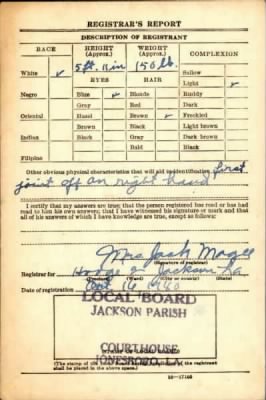 REGISTRAR'S REPORT
DESCRIPTION OF REGISTRANT
RACE HEIGHT (Approx.) WEIGHT (Approx.) COMPLEXION
White ✓ 5 ft. 11 in 150 lb. Sallow
EYES HAIR Light ✓
Negro Blue ✓ Blonde Ruddy
Gray Red Dark
Oriental Hazel Brown ✓ Freckled
Brown Black Light brown
Indian Black Gray Dark brown
Bald Black
Filipino
Other obvious physical characteristics that will aid in identification first
joint off on right hand
I certify that my answers are true; that the person registered has read or has had
read to him his own answers; that I have witnessed his signature or mark and that
all of his answers of which I have knowledge are true, except as follows:
Mrs Jack Magee
(Signature of registrar)
Registrar for Hodge 2 Jackson La
Date of registration Oct 16 1940
LOCAL BOARD
JACKSON PARISH
COURTHOUSE
JONESBORO, LA.
shall be placed in the above space.)
16-17105